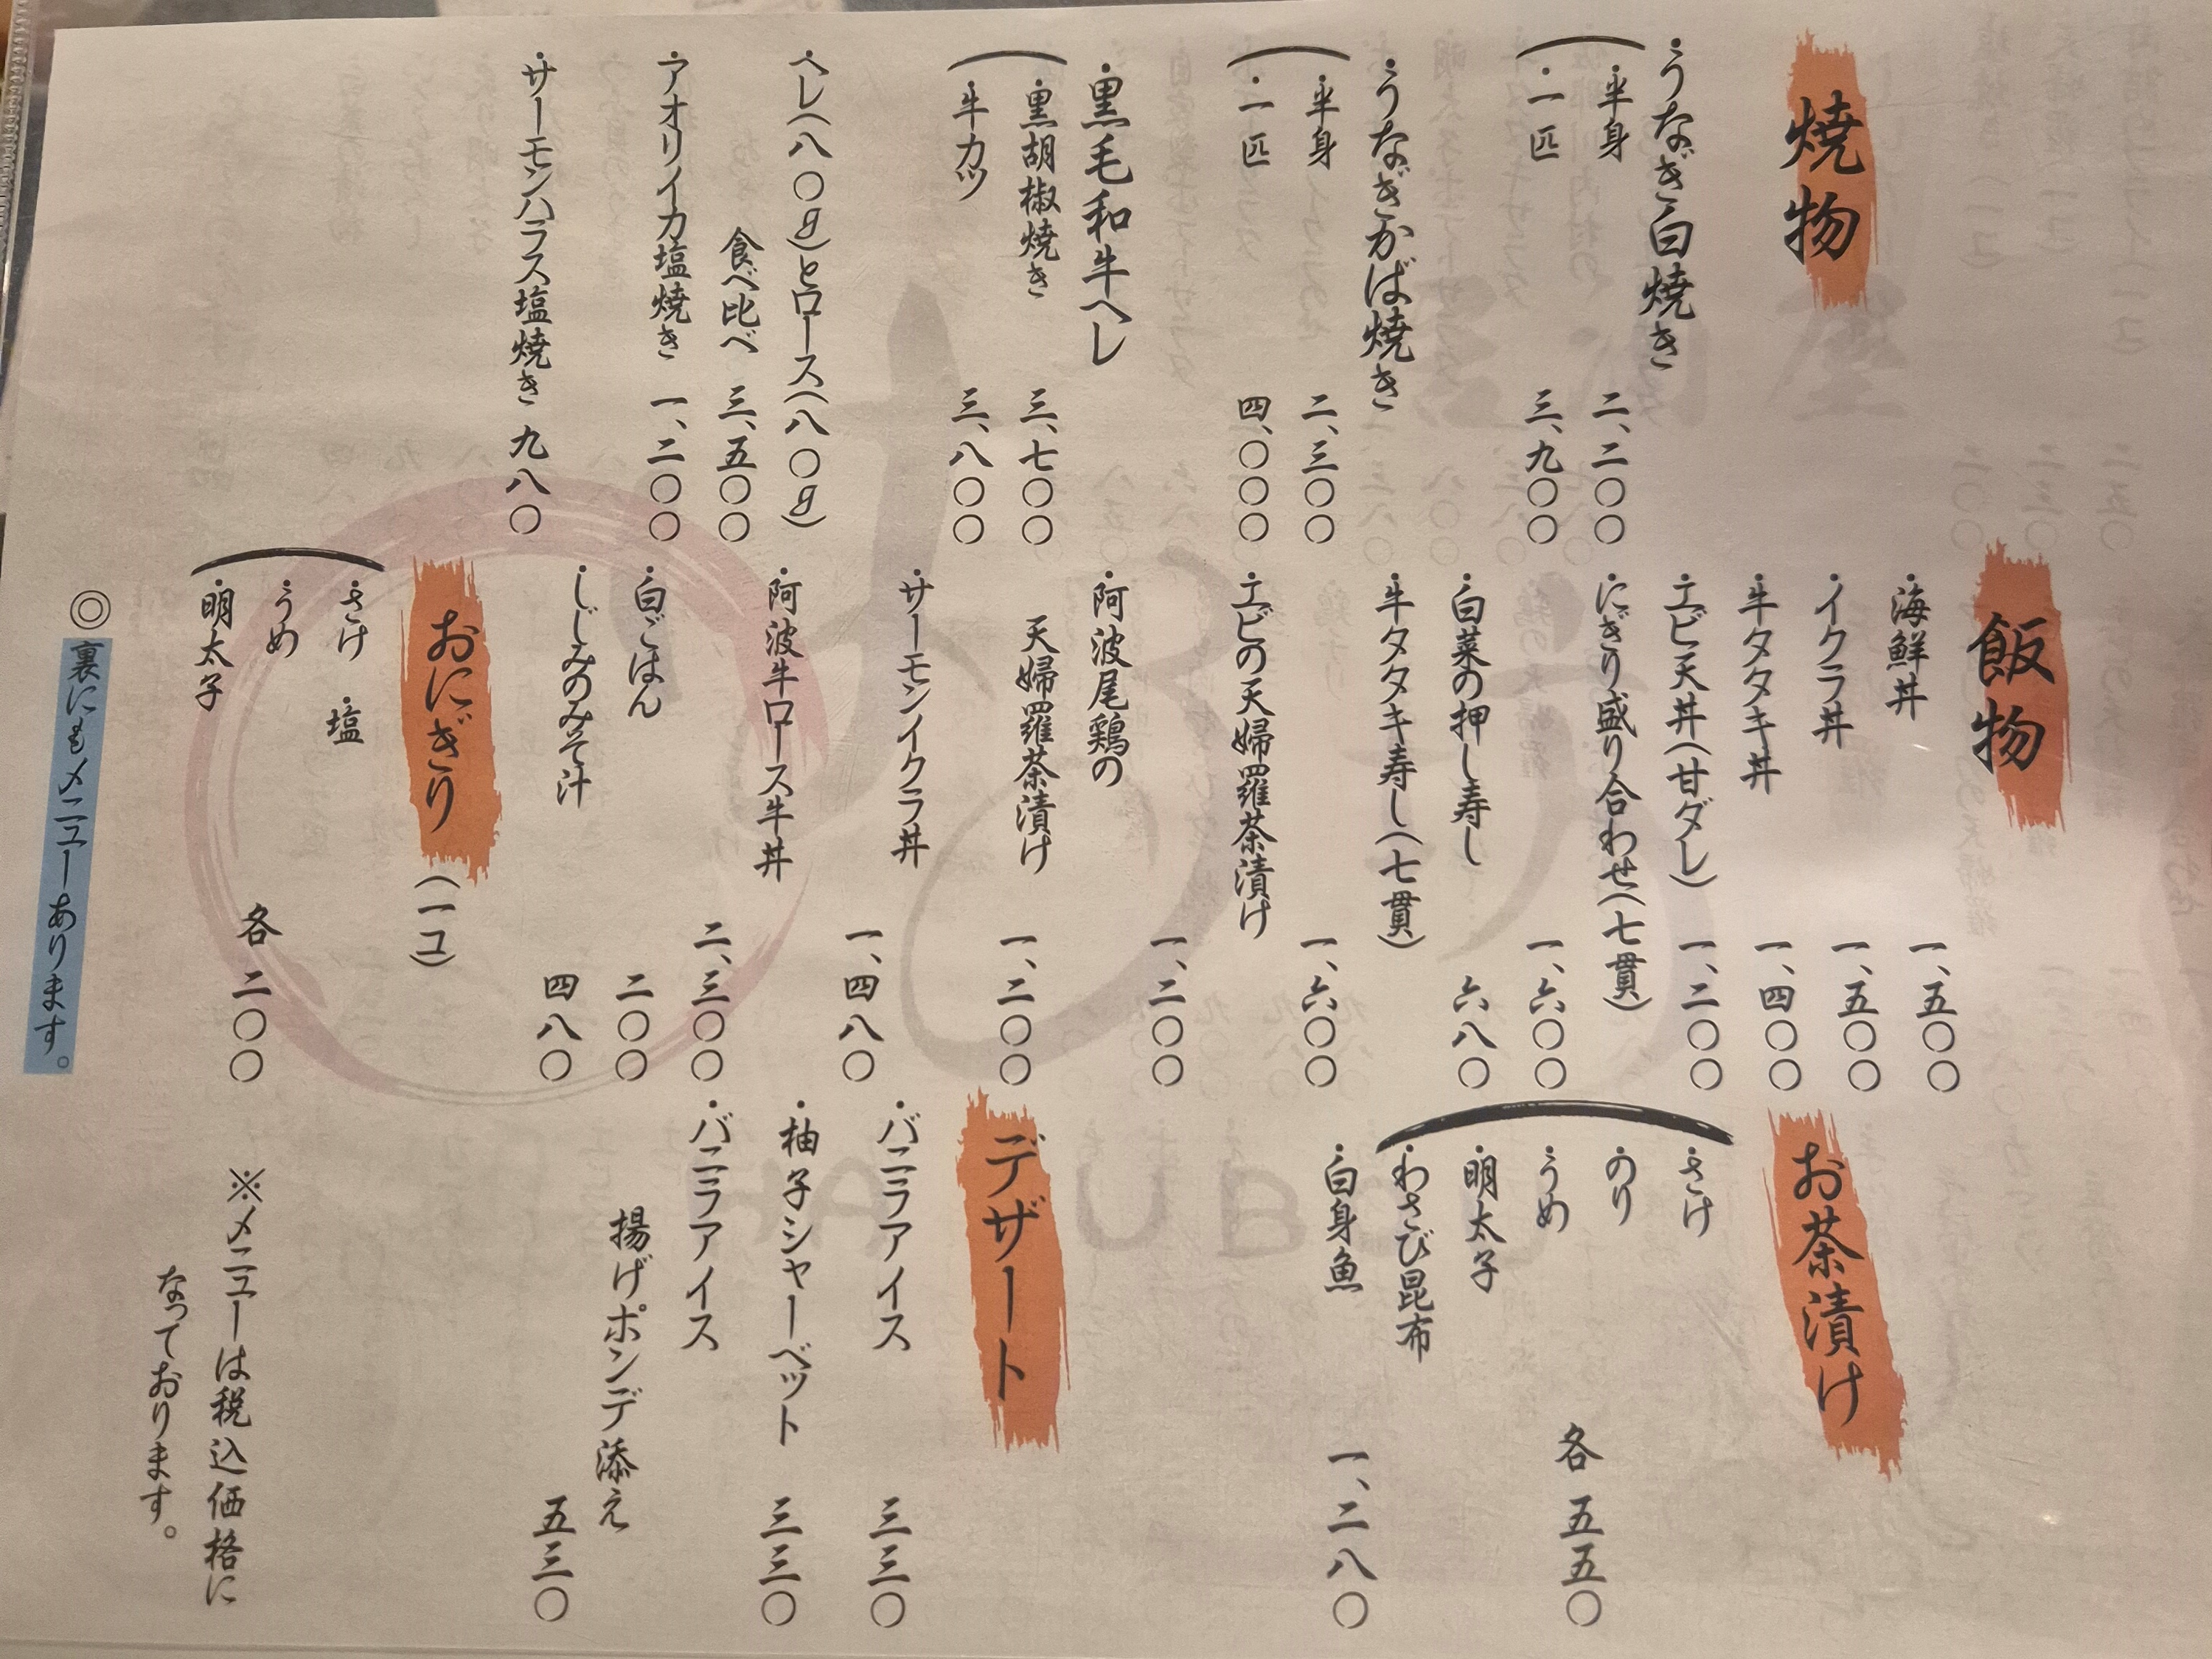 焼物
・うなぎ白焼き
・半身 二、二〇〇
・一匹 三、九〇〇
・うなぎかば焼き
・半身 二、三〇〇
・一匹 四、〇〇〇
・黒毛和牛ヘレ
・黒胡椒焼き 三、七〇〇
・牛カツ 三、八〇〇
・ヘレ(八〇g)とロース(八〇g)
食べ比べ 三、五〇〇
・アオリイカ塩焼き 一、二〇〇
・サーモンハラス塩焼き 九八〇
飯物
・海鮮丼 一、五〇〇
・イクラ丼 一、五〇〇
・牛タタキ丼 一、四〇〇
・エビ天丼(甘ダレ) 一、二〇〇
・にぎり盛り合わせ(七貫)
一、六〇〇
・白菜の押し寿し 六八〇
・牛タタキ寿し(七貫)
一、六〇〇
・エビの天婦羅茶漬け
一、二〇〇
・阿波尾鶏の
天婦羅茶漬け
一、二〇〇
・サーモンイクラ丼
一、四八〇
・阿波牛ロース牛丼
二、三〇〇
・白ごはん 二〇〇
・しじみのみそ汁 四八〇
おにぎり(一コ)
・さけ ・塩
・うめ
・明太子
各 二〇〇
お茶漬け
・さけ
・のり
・うめ
・明太子
・わさび昆布
各 五五〇
・白身魚 一、二八〇
デザート
・バニラアイス 三三〇
・柚子シャーベット 三三〇
・バニラアイス
揚げポンデ添え
五三〇
※メニューは税込価格に
なっております。
◎裏にもメニューあります。